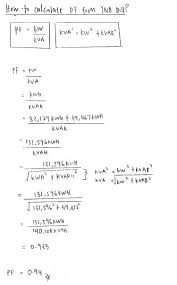 How to calculate PF from TNB Bill?
PF = KW / KVA
KVA² = KW² + KVAR²
PF = KW / KVA
= KWH / KVAH
= 82,129 KWH + 49,467 KWH / KVAH
= 131,596 KWH / KVAH
= 131,596 KWH / √KWH² + KVARH²
KVA² = KW² + KVAR²
KVA = √KW² + KVAR²
= 131,596 KWH / √131,596² +
= 131,596 KWH /
= 0.93
PF = 0.94